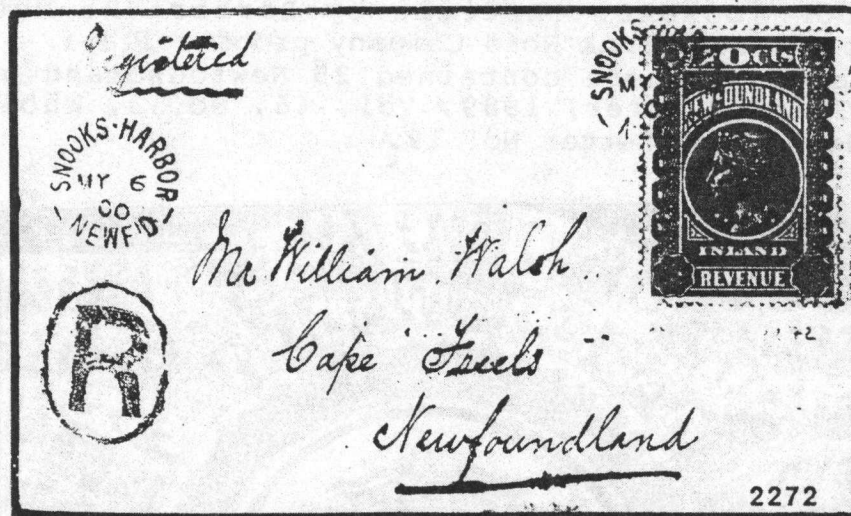 Registered
SNOOKS-HARBOR
MY 6
00
NEWF'D
R
SNOOKS
MY
20 CTS
NEWFOUNDLAND
INLAND
REVENUE
Mr William Walsh
Cape Freels
Newfoundland
2272